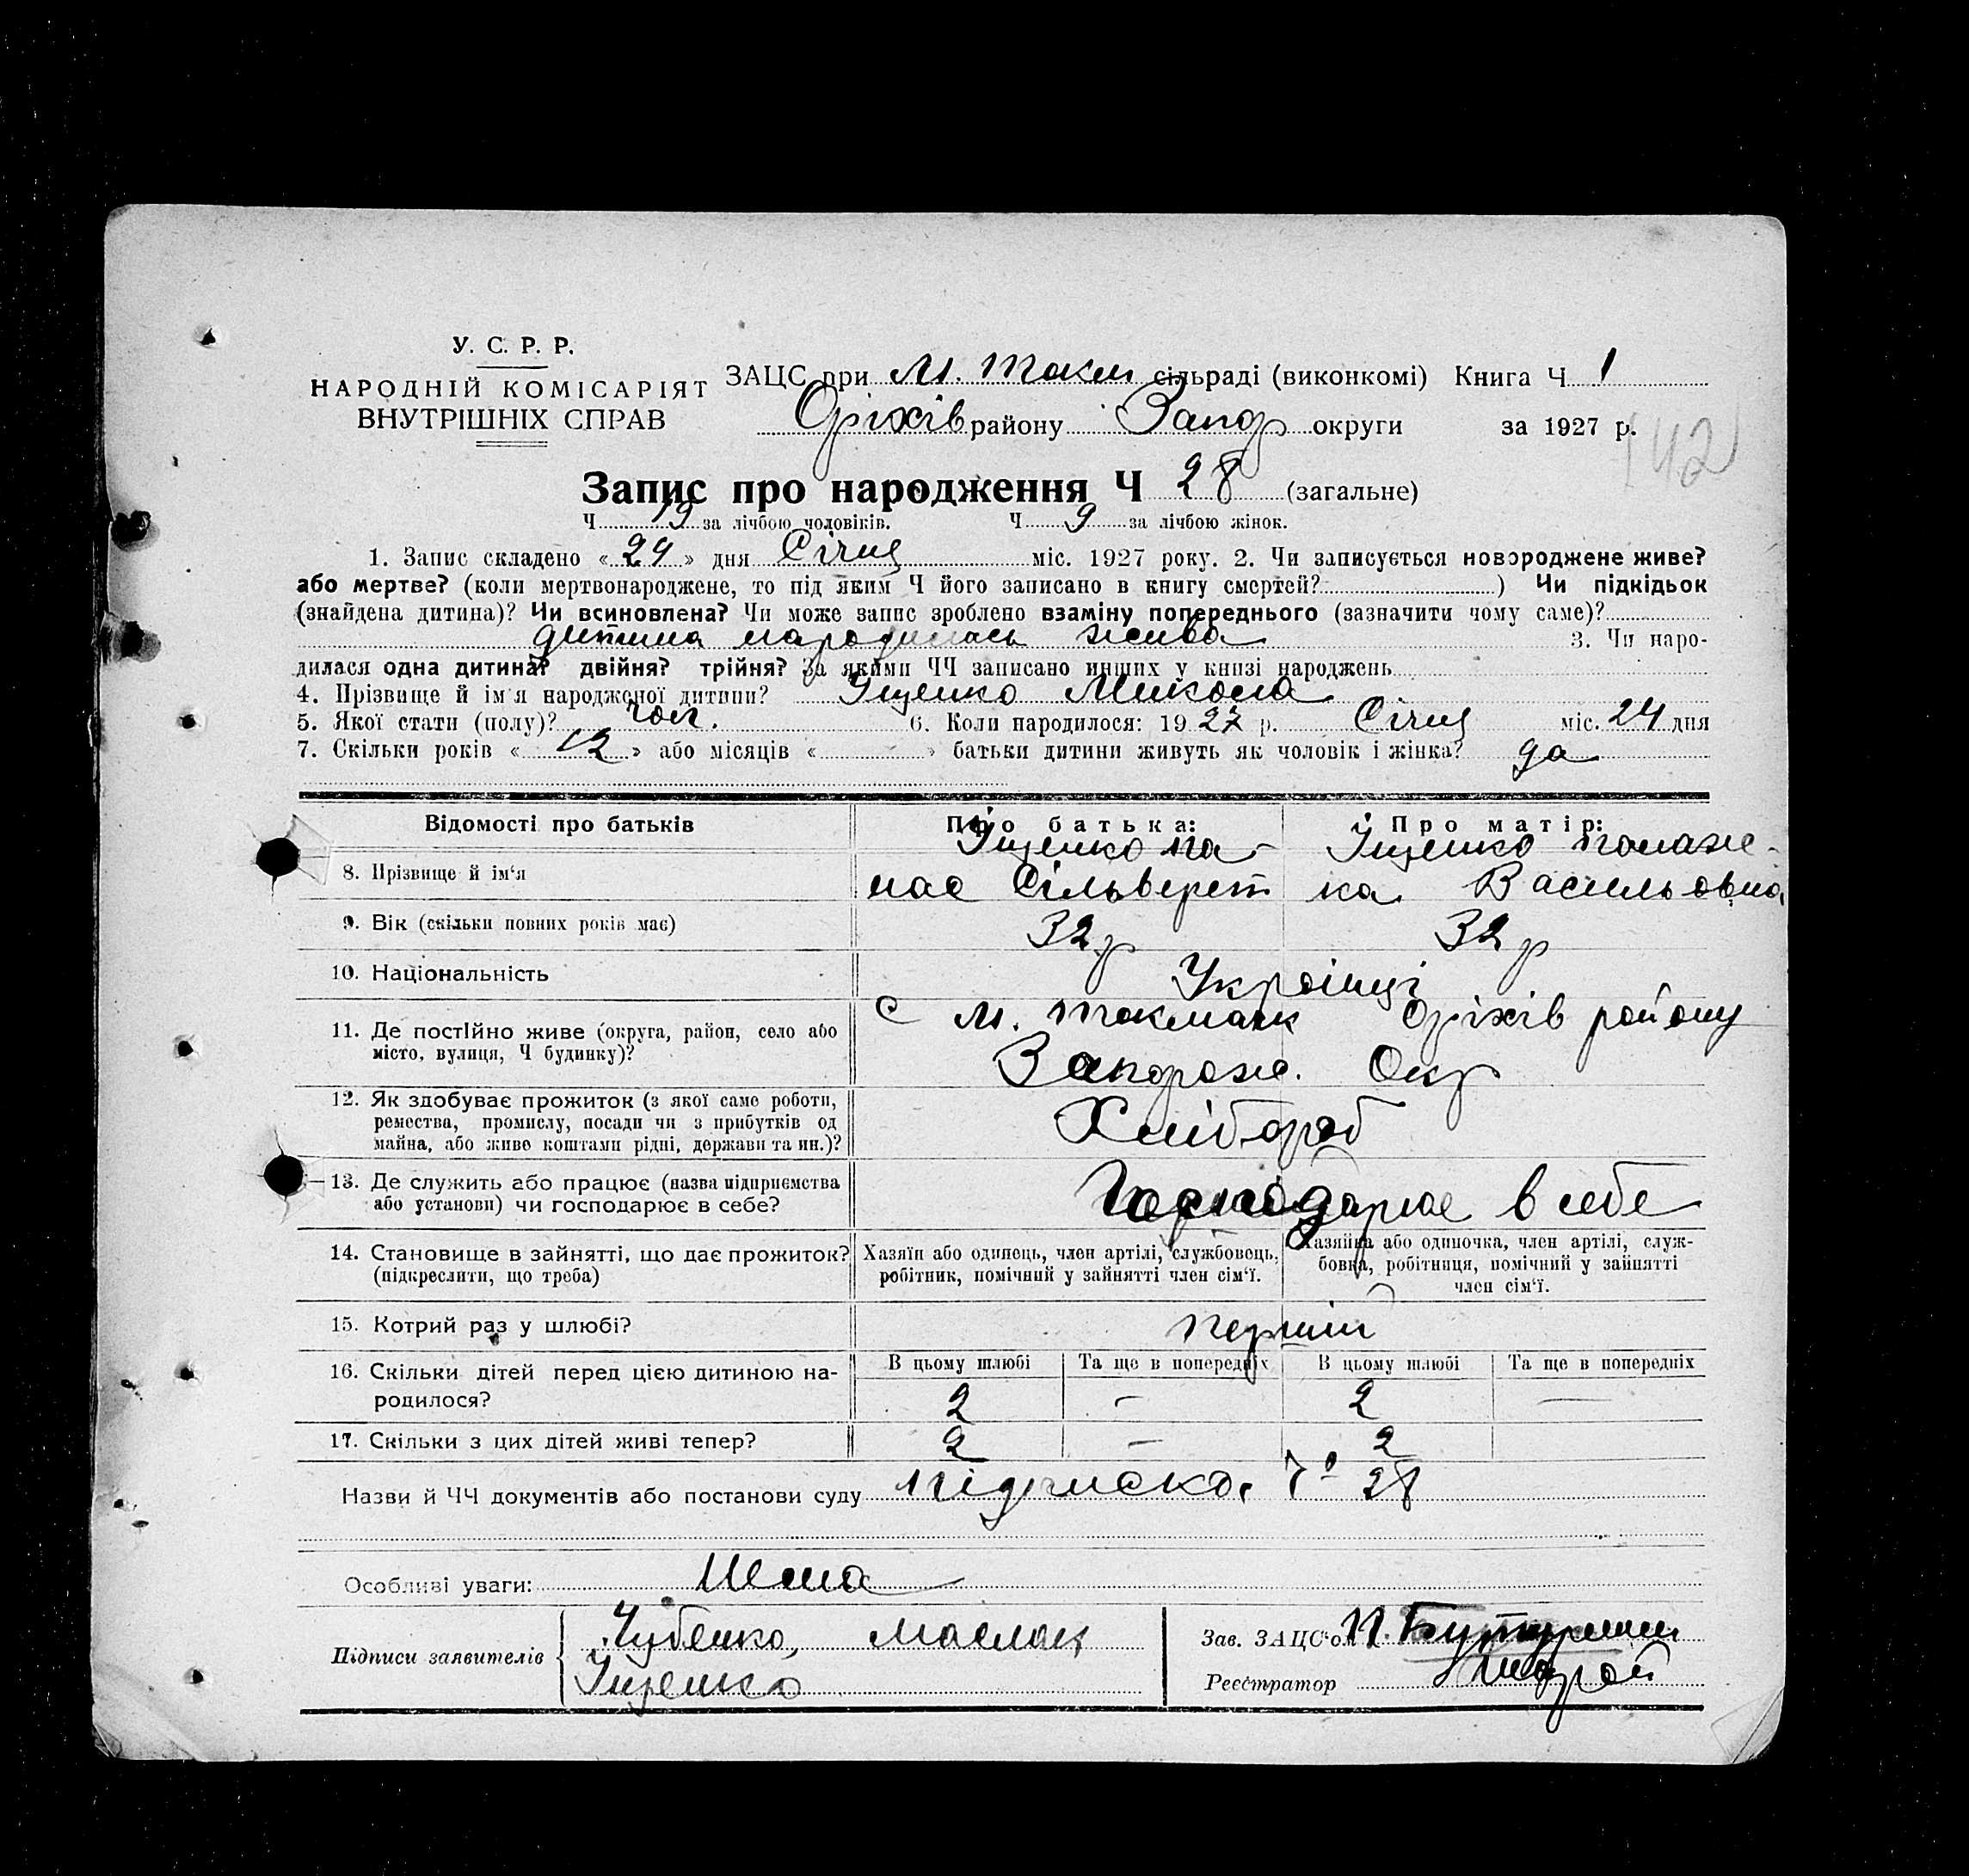 У. С. Р. Р.
НАРОДНІЙ КОМІСАРІЯТ
ВНУТРІШНІХ СПРАВ
ЗАЦС при М. Токм сільраді (виконкомі) Книга Ч 1
Оріхів району Запор округи за 1927 р.
142
Запис про народження Ч 28 (загальне)
Ч 19 за лічбою чоловіків. Ч 9 за лічбою жінок.
1. Запис складено «24» дня Січня міс. 1927 року. 2. Чи записується новороджене живе?
або мертве? (коли мертвонароджене, то під яким Ч його записано в книгу смертей? ) Чи підкідьок
(знайдена дитина)? Чи всиновлена? Чи може запис зроблено взаміну попереднього (зазначити чому саме)?
дитина народилась жива 3. Чи наро-
дилася одна дитина? двійня? трійня? За якими ЧЧ записано инших у книзі народжень
4. Прізвище й ім'я народженої дитини? Іщенко Микола
5. Якої стати (полу)? чол. 6. Коли народилося: 1927 р. Січня міс. 24 дня
7. Скільки років «12» або місяців « » батьки дитини живуть як чоловік і жінка? да
Відомості про батьків Про батька: Про матір:
8. Прізвище й ім'я Іщенко Па- Іщенко Полаже-
нас Сільверст ка Васильовна
9. Вік (скільки повних років має) 32 р 32 р
10. Національність Українці
11. Де постійно живе (округа, район, село або С М. Токмачк Оріхів району
місто, вулиця, Ч будинку)? Запорож. Окр
12. Як здобуває прожиток (з якої саме роботи,
ремества, промислу, посади чи з прибутків од Хлібороб
майна, або живе коштами рідні, держави та ин.)?
13. Де служить або працює (назва підприємства Господарює в себе
або установи) чи господарює в себе?
14. Становище в зайнятті, що дає прожиток? Хазяїн або одинець, член артілі, службовець, Хазяйка або одиночка, член артілі, служ-
(підкреслити, що треба) робітник, помічний у зайнятті член сім'ї. бовка, робітниця, помічний у зайнятті
член сім'ї.
15. Котрий раз у шлюбі? перший
16. Скільки дітей перед цією дитиною на- В цьому шлюбі Та ще в попередніх В цьому шлюбі Та ще в попередніх
родилося? 2 — 2 —
17. Скільки з цих дітей живі тепер? 2 — 2
Назви й ЧЧ документів або постанови суду підписка Ч 28
Особливі уваги: Нема
Підписи заявителів Чубенко, Маслак
Іщенко
Зав. ЗАЦС'ом
Реєстратор